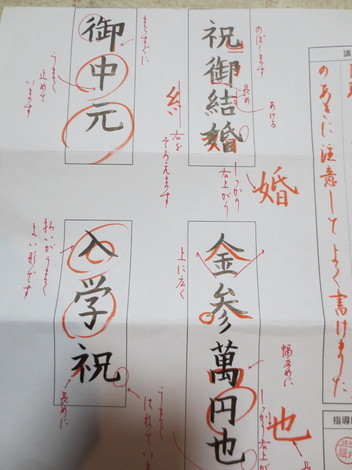 のばします
祝御結婚
長め
あける
しっかり右上がり
婚
糸
右を
そろえます
御中元
まっすぐに
うまく
止めて
います
金参萬円也
上に広く
幅広めに
しっかり右上がり
也
入学祝
払いがうまく
よい形です
長めに
うまく
はねて
のあきに注意してよく書けました